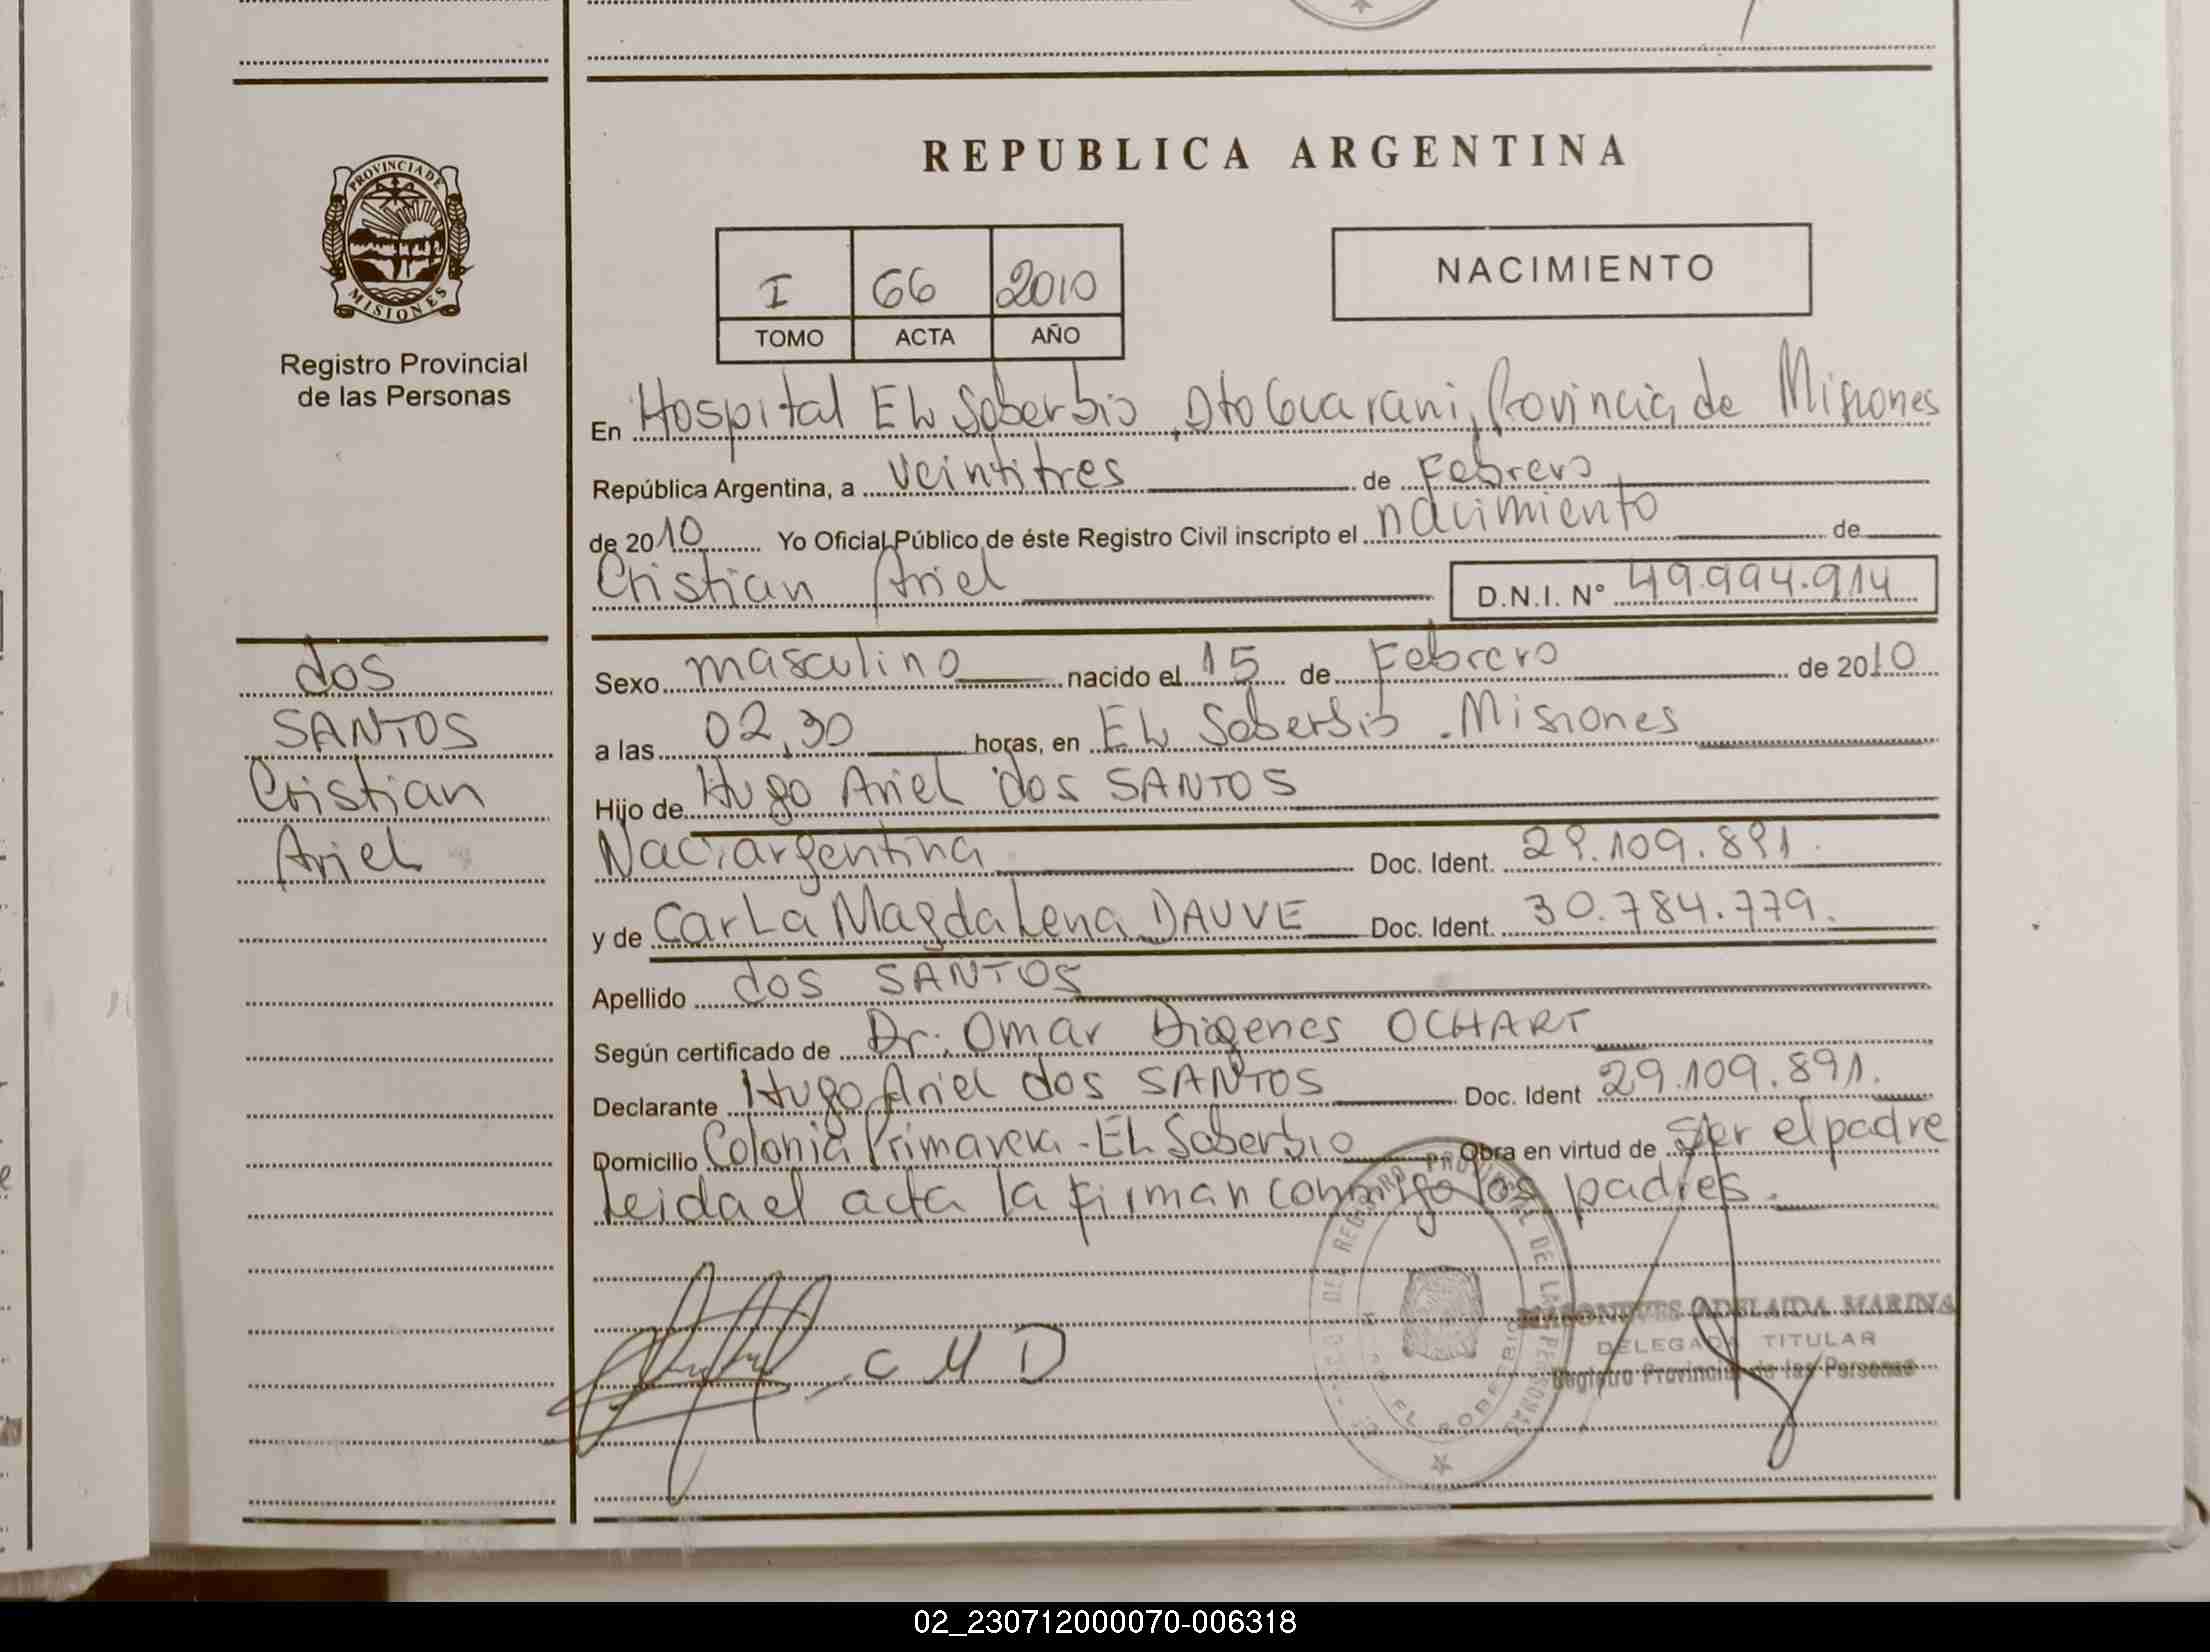 REPUBLICA ARGENTINA
PROVINCIA DE
MISIONES
Registro Provincial
de las Personas
I 66 2010
TOMO ACTA AÑO
NACIMIENTO
En Hospital EL Soberbio, Dto Guarani, Provincia de Misiones
República Argentina, a veintitres de Febrero
de 2010 Yo Oficial Público de éste Registro Civil inscripto el nacimiento de
Cristian Ariel D.N.I. Nº 49.994.914
dos
SANTOS
Cristian
Ariel
Sexo masculino nacido el 15 de Febrero de 2010
a las 02,30 horas, en EL Soberbio. Misiones
Hijo de Hugo Ariel dos SANTOS
Nac: argentina Doc. Ident. 29.109.891.
y de Carla Magdalena DAUVE Doc. Ident. 30.784.779.
Apellido dos SANTOS
Según certificado de Dr. Omar Diogenes OCHART
Declarante Hugo Ariel dos SANTOS Doc. Ident 29.109.891.
Domicilio Colonia Primavera - EL Soberbio Obra en virtud de ser el padre
Leida el acta la firman conmigo los padres.
C M D
REGISTRO PROVINCIAL DE LAS PERSONAS
EL SOBERBIO
ADELAIDA MARINA
DELEGADA TITULAR
Registro Provincial de las Personas
02_230712000070-006318